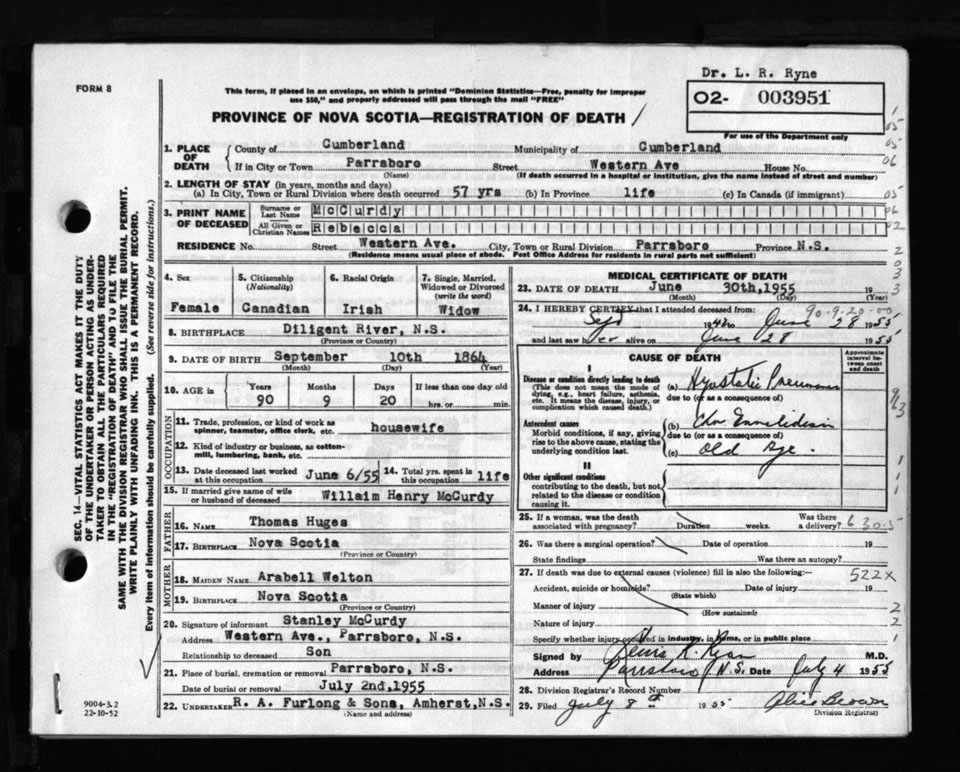 Dr. L. R. Ryne
FORM 8
This form, if placed in an envelope, on which is printed "Dominion Statistics—Free, penalty for improper
use $50," and properly addressed will pass through the mail "FREE"
O2- 003951
For use of the Department only
PROVINCE OF NOVA SCOTIA—REGISTRATION OF DEATH
1. PLACE OF DEATH County of Cumberland Municipality of Cumberland
If in City or Town Parrsboro Street Western Ave House No.
(Name) (If death occurred in a hospital or institution, give the name instead of street and number)
2. LENGTH OF STAY (in years, months and days)
(a) In City, Town or Rural Division where death occurred 57 yrs (b) In Province life (c) In Canada (if immigrant)
3. PRINT NAME OF DECEASED Surname or Last Name McCurdy
All Given or Christian Names Rebecca
RESIDENCE No. Street Western Ave. City, Town or Rural Division Parrsboro Province N.S.
(Residence means usual place of abode. Post Office Address for residents in rural parts not sufficient)
4. Sex Female
5. Citizenship (Nationality) Canadian
6. Racial Origin Irish
7. Single, Married, Widowed or Divorced (write the word) Widow
8. BIRTHPLACE Diligent River, N.S.
(Province or Country)
9. DATE OF BIRTH September 10th 1864
(Month) (Day) (Year)
10. AGE is Years 90 Months 9 Days 20 If less than one day old hrs. or min.
OCCUPATION
11. Trade, profession, or kind of work as spinner, teamster, office clerk, etc. housewife
12. Kind of industry or business, as cotton-mill, lumbering, bank, etc.
13. Date deceased last worked at this occupation June 6/55 14. Total yrs. spent in this occupation life
15. If married give name of wife or husband of deceased Willaim Henry McCurdy
FATHER
16. NAME Thomas Huges
17. BIRTHPLACE Nova Scotia
(Province or Country)
MOTHER
18. MAIDEN NAME Arabell Welton
19. BIRTHPLACE Nova Scotia
(Province or Country)
20. Signature of informant Stanley McCurdy
Address Western Ave., Parrsboro, N.S.
Relationship to deceased Son
21. Place of burial, cremation or removal Parrsboro, N.S.
Date of burial or removal July 2nd,1955
22. UNDERTAKER R. A. Furlong & Sons, Amherst,N.S.
(Name and address)
MEDICAL CERTIFICATE OF DEATH
23. DATE OF DEATH June 30th,1955 19
(Month) (Day) (Year)
90-9-20-00
24. I HEREBY CERTIFY that I attended deceased from:
Sept 1942 to June 28 1955
and last saw her alive on June 28 1955
CAUSE OF DEATH
Approximate interval between onset and death
I
Disease or condition directly leading to death (a) Hypostatic Pneumonia
(This does not mean the mode of dying, e.g., heart failure, asthenia, etc. It means the disease, injury, or complication which caused death.)
due to (or as a consequence of)
Antecedent causes (b) Chr.
Morbid conditions, if any, giving rise to the above cause, stating the underlying condition last.
due to (or as a consequence of)
(c) Old Age.
II
Other significant conditions
contributing to the death, but not related to the disease or condition causing it.
25. If a woman, was the death associated with pregnancy? Duration weeks. Was there a delivery? 630-5
26. Was there a surgical operation? Date of operation 19
State findings Was there an autopsy?
27. If death was due to external causes (violence) fill in also the following:— 522X
Accident, suicide or homicide? Date of injury 19
(State which)
Manner of injury
(How sustained)
Nature of injury
Specify whether injury occurred in industry, in home, or in public place
Signed by M.D.
Address Parrsboro N.S. Date July 4 1955
28. Division Registrar's Record Number
29. Filed July 8th 1955 Alice Brown
Division Registrar
SEC. 14—VITAL STATISTICS ACT MAKES IT THE DUTY
OF THE UNDERTAKER OR PERSON ACTING AS UNDER-
TAKER TO OBTAIN ALL THE PARTICULARS REQUIRED
IN THE "REGISTRATION OF DEATH" AND TO FILE THE
SAME WITH THE DIVISION REGISTRAR WHO SHALL ISSUE THE BURIAL PERMIT.
WRITE PLAINLY WITH UNFADING INK. THIS IS A PERMANENT RECORD.
Every item of information should be carefully supplied. (See reverse side for instructions.)
9004-3.2
22-10-52
1
05
05
06
05
06
02
2
0
3
3
9/63
1
1
1
2
2
1